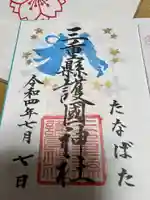 たなばた
三重縣護國神社
令和四年七月七日